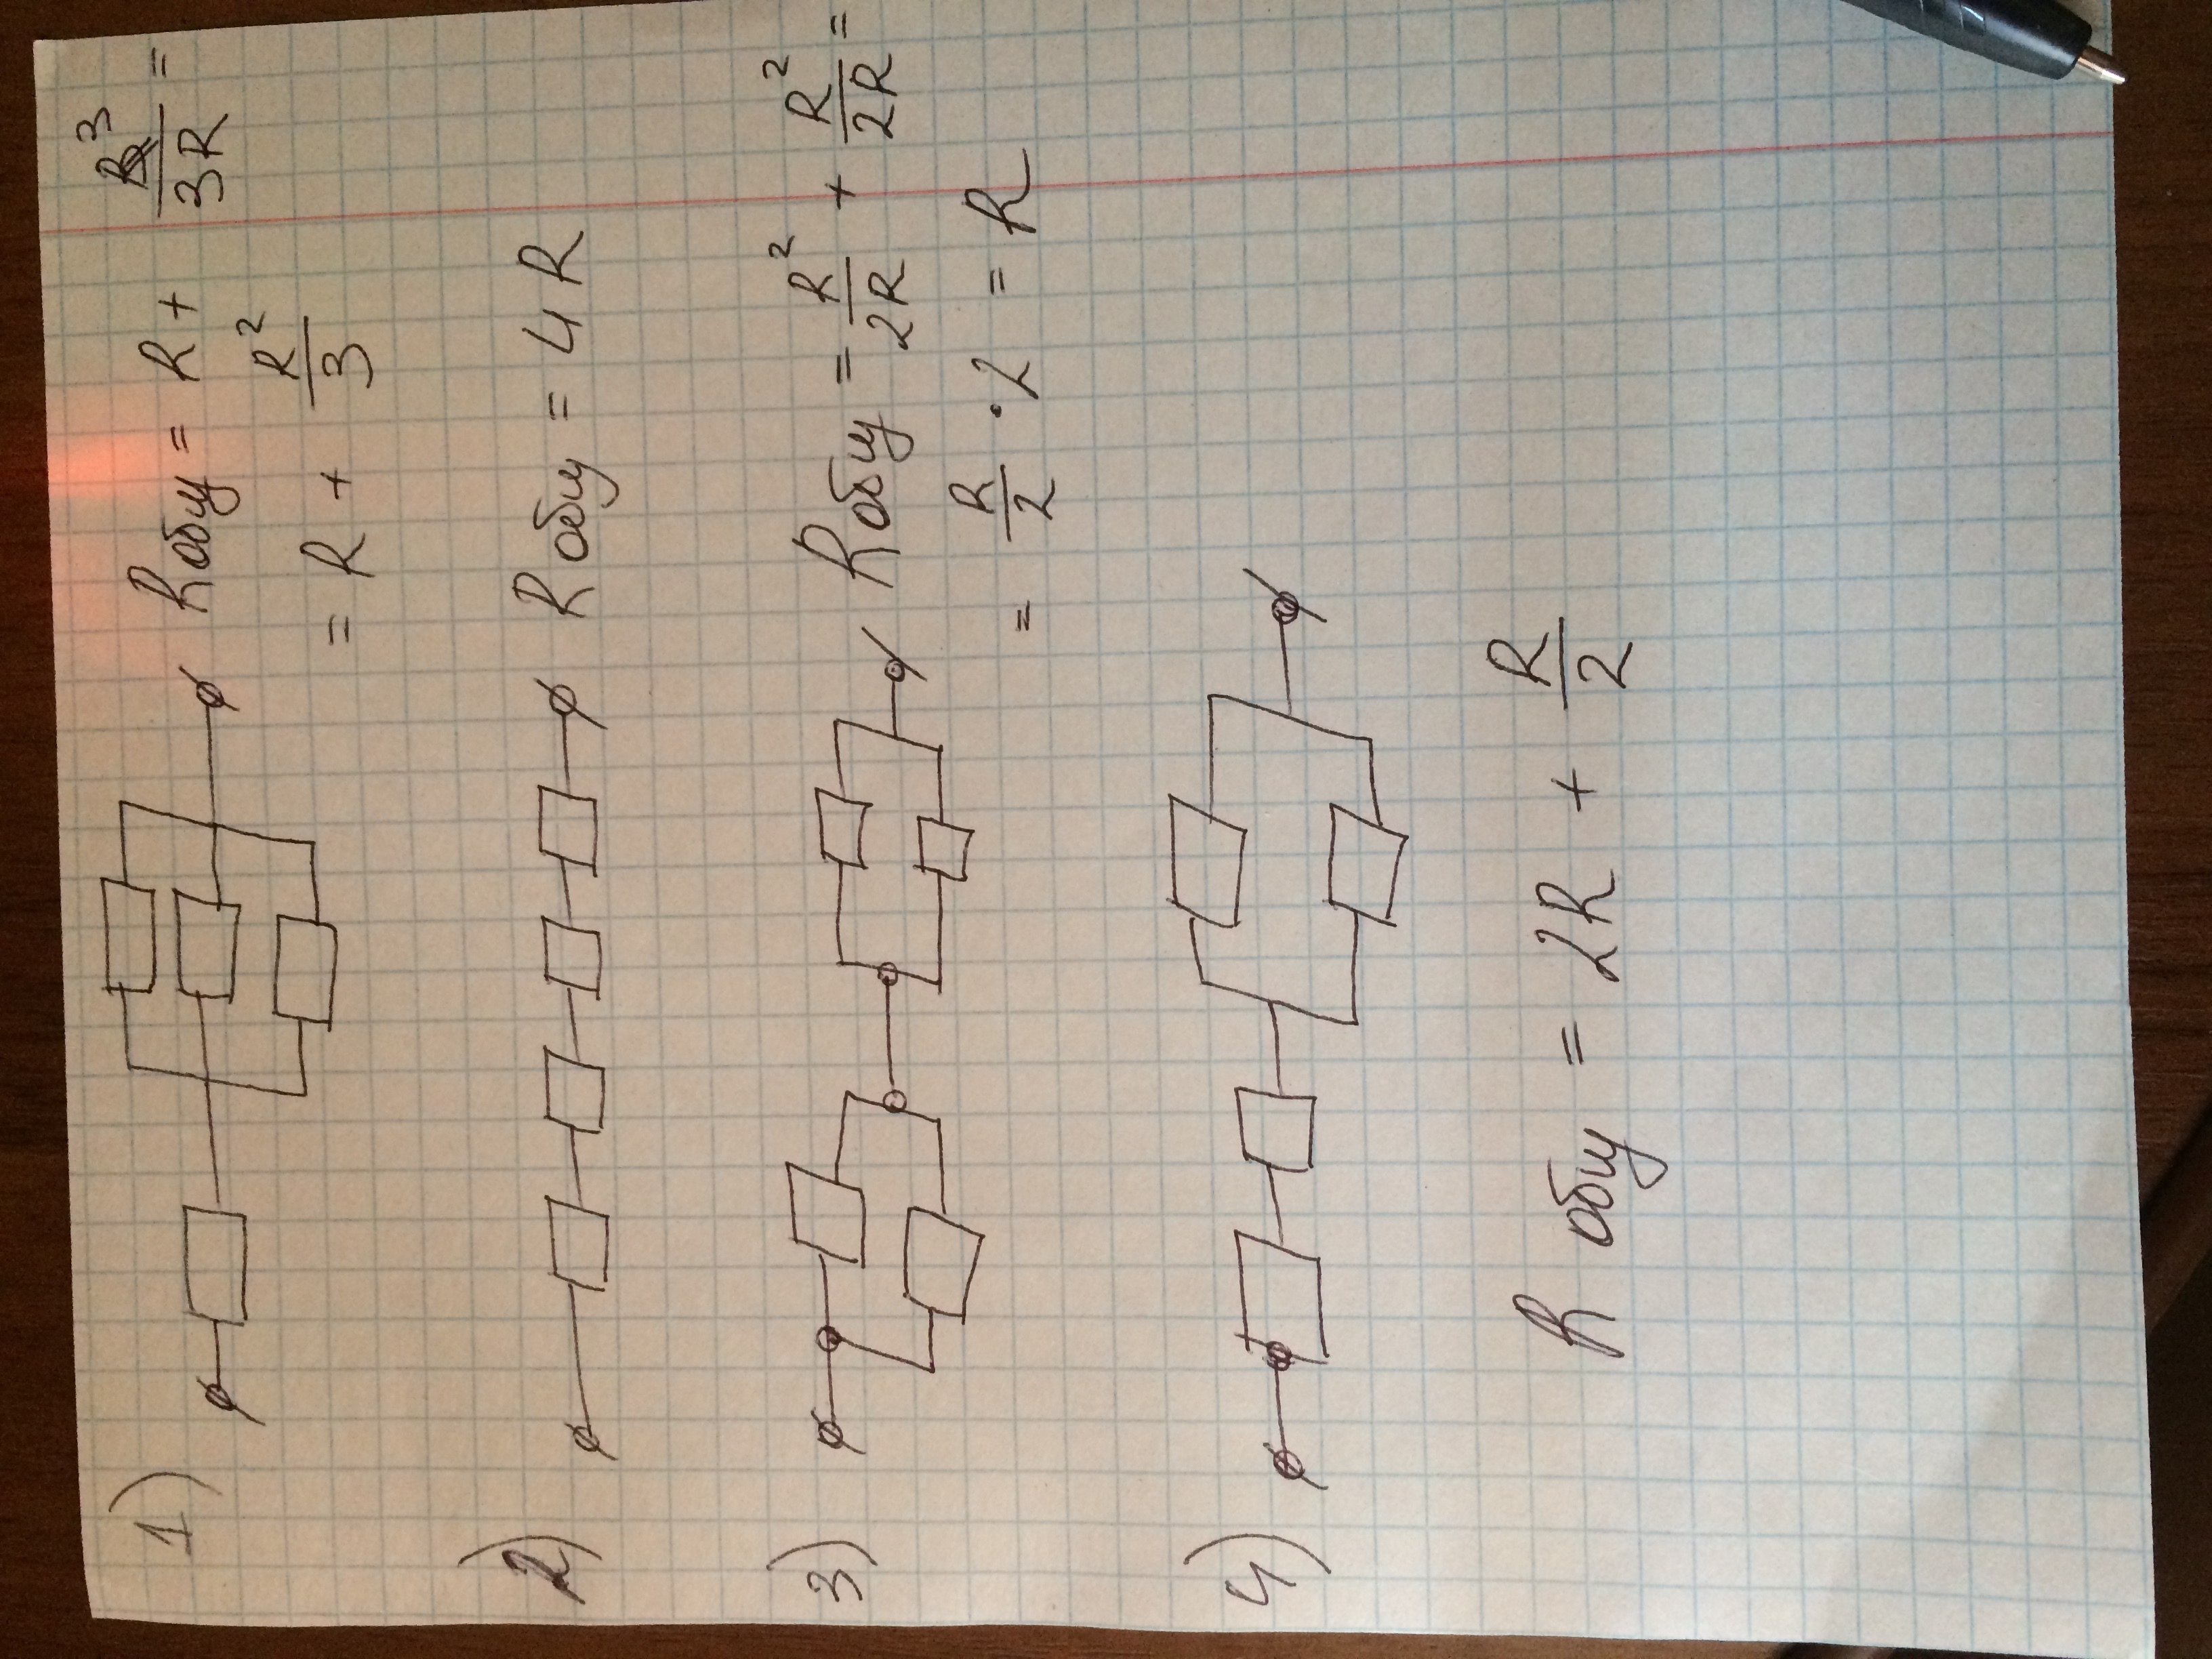 1) Rобщ = R + R³/3R =
= R + R²/3
2) Rобщ = 4R
3) Rобщ = R²/2R + R²/2R =
= R/2 · 2 = R
4)
Rобщ = 2R + R/2